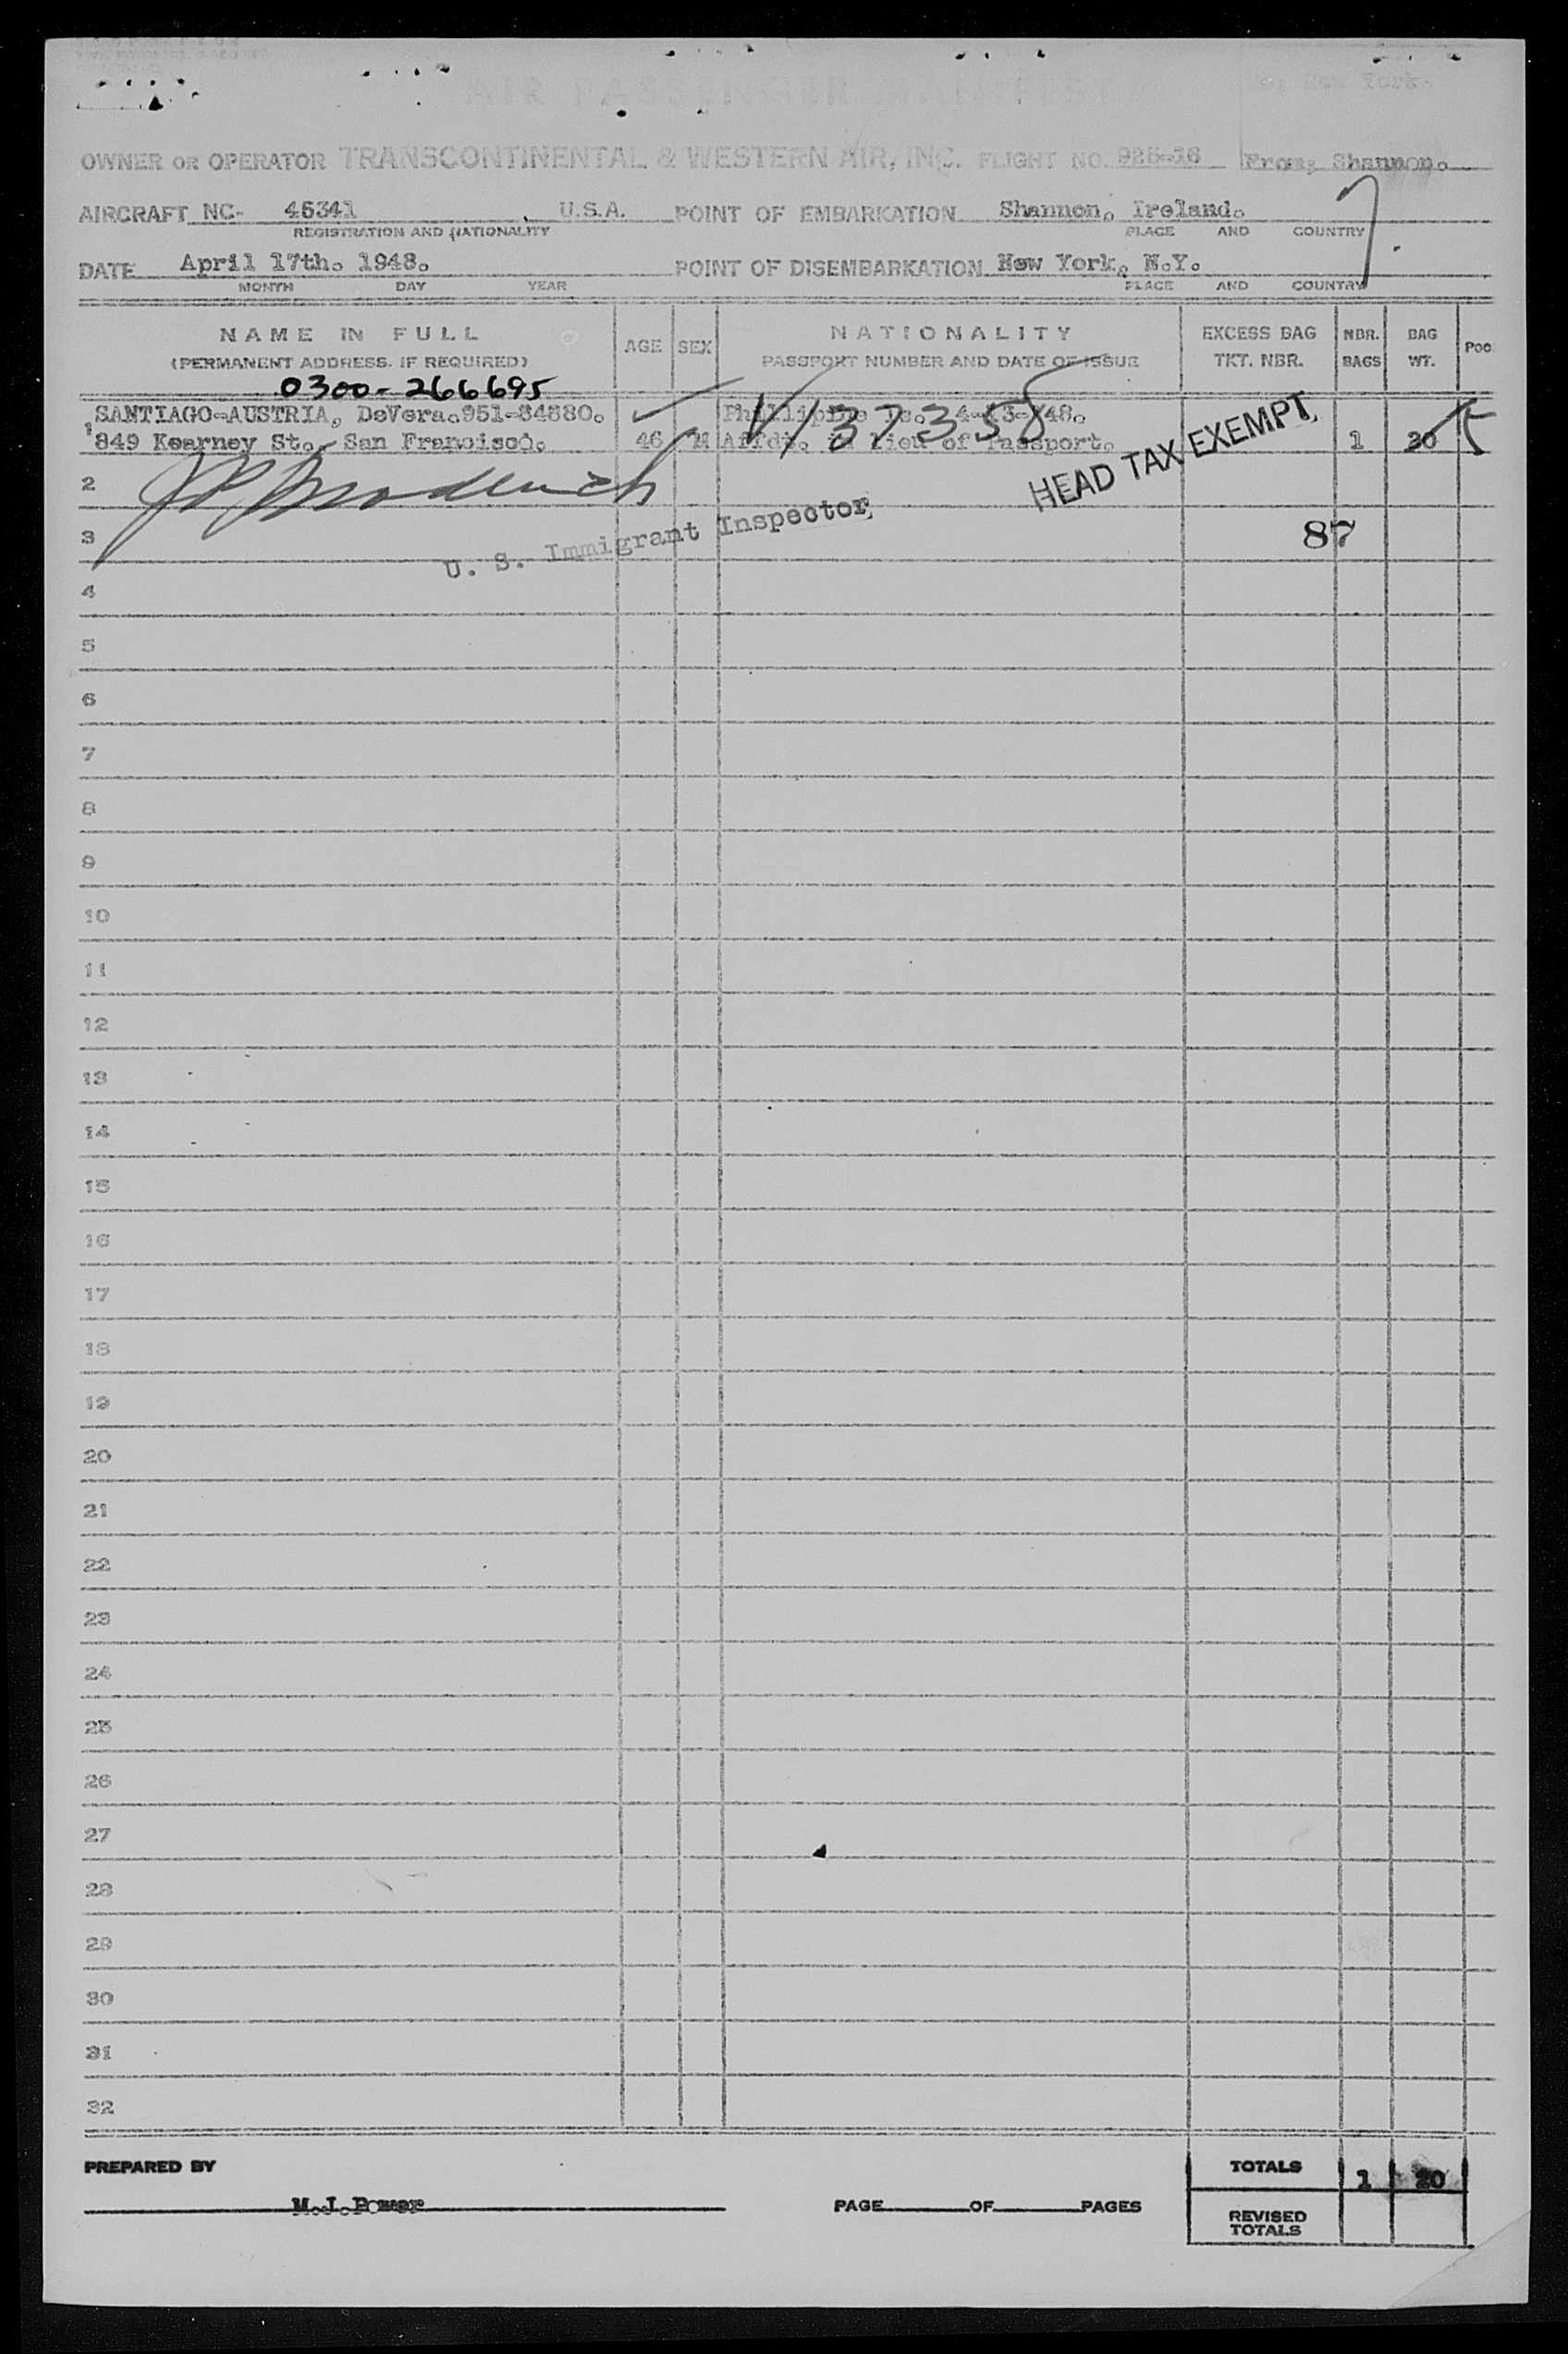 AIR PASSENGER MANIFEST
New York.
OWNER OR OPERATOR TRANSCONTINENTAL & WESTERN AIR, INC. FLIGHT NO. 925-16 From; Shannon.
AIRCRAFT NC- 45341, U.S.A. POINT OF EMBARKATION Shannon, Ireland.
REGISTRATION AND NATIONALITY PLACE AND COUNTRY
DATE April 17th. 1948. POINT OF DISEMBARKATION New York, N.Y.
MONTH DAY YEAR PLACE AND COUNTRY
NAME IN FULL AGE SEX NATIONALITY EXCESS BAG NBR. BAG POC
(PERMANENT ADDRESS, IF REQUIRED) PASSPORT NUMBER AND DATE OF ISSUE TKT. NBR. BAGS WT.
0300-266695
SANTIAGO-AUSTRIA, DeVera. 951-84880. Phillipine 48.
V137358
1 849 Kearney St. San Francisco. 46 M Affdt. in lieu of Passport. 1 20
HEAD TAX EXEMPT.
2
3 U. S. Immigrant Inspector 87
4
5
6
7
8
9
10
11
12
13
14
15
16
17
18
19
20
21
22
23
24
25
26
27
28
29
30
31
32
PREPARED BY TOTALS 1 20
M.J.Power PAGE OF PAGES
REVISED
TOTALS